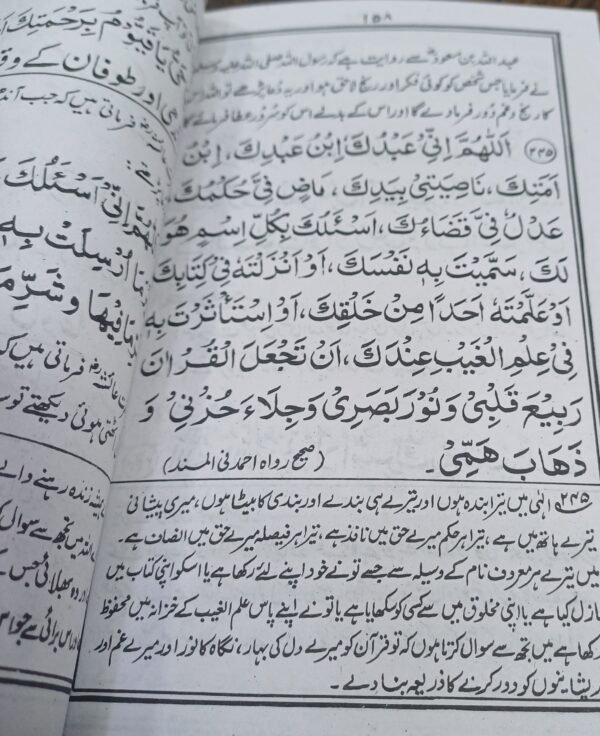 ۱۵۸
عبداللہ بن مسعودؓ سے روایت ہے کہ رسول اللہ صلی اللہ علیہ وسلم
نے فرمایا جس شخص کو کوئی فکر اور رنج لاحق ہو اور یہ دعا پڑھے تو اللہ اس
کا رنج و غم دور فرما دے گا اور اس کے بدلے اس کو سرور عطا فرمائے گا
۲۴۵ اَللّٰهُمَّ اِنِّیْ عَبْدُكَ اِبْنُ عَبْدِكَ، اِبْنُ
اَمَتِكَ، نَاصِیَتِیْ بِیَدِكَ، مَاضٍ فِیَّ حُكْمُكَ،
عَدْلٌ فِیَّ قَضَاءُكَ، اَسْئَلُكَ بِكُلِّ اِسْمٍ هُوَ
لَكَ، سَمَّیْتَ بِهٖ نَفْسَكَ، اَوْ اَنْزَلْتَهٗ فِیْ كِتَابِكَ
اَوْ عَلَّمْتَهٗ اَحَدًا مِنْ خَلْقِكَ، اَوْ اِسْتَأْثَرْتَ بِهٖ
فِیْ عِلْمِ الْغَیْبِ عِنْدَكَ، اَنْ تَجْعَلَ الْقُرْاٰنَ
رَبِیْعَ قَلْبِیْ وَنُوْرَ بَصَرِیْ وَجِلَاءَ حُزْنِیْ وَ
ذَهَابَ هَمِّیْ۔ (صحیح رواہ احمد فی المسند)
۲۴۵ الٰہی میں تیرا بندہ ہوں اور تیرے ہی بندے اور بندی کا بیٹا ہوں، میری پیشانی
تیرے ہاتھ میں ہے، تیرا ہر حکم میرے حق میں نافذ ہے، تیرا ہر فیصلہ میرے حق میں انصاف ہے۔
میں تیرے ہر معروف نام کے وسیلہ سے جسے تو نے خود اپنے لئے رکھا ہے یا اسکو اپنی کتاب میں
نازل کیا ہے یا اپنی مخلوق میں سے کسی کو سکھایا ہے یا تو نے اپنے پاس علم الغیب کے خزانہ میں محفوظ
رکھا ہے میں تجھ سے سوال کرتا ہوں کہ تو قرآن کو میرے دل کی بہار، نگاہ کا نور اور میرے غم اور
پریشانیوں کو دور کرنے کا ذریعہ بنا دے۔